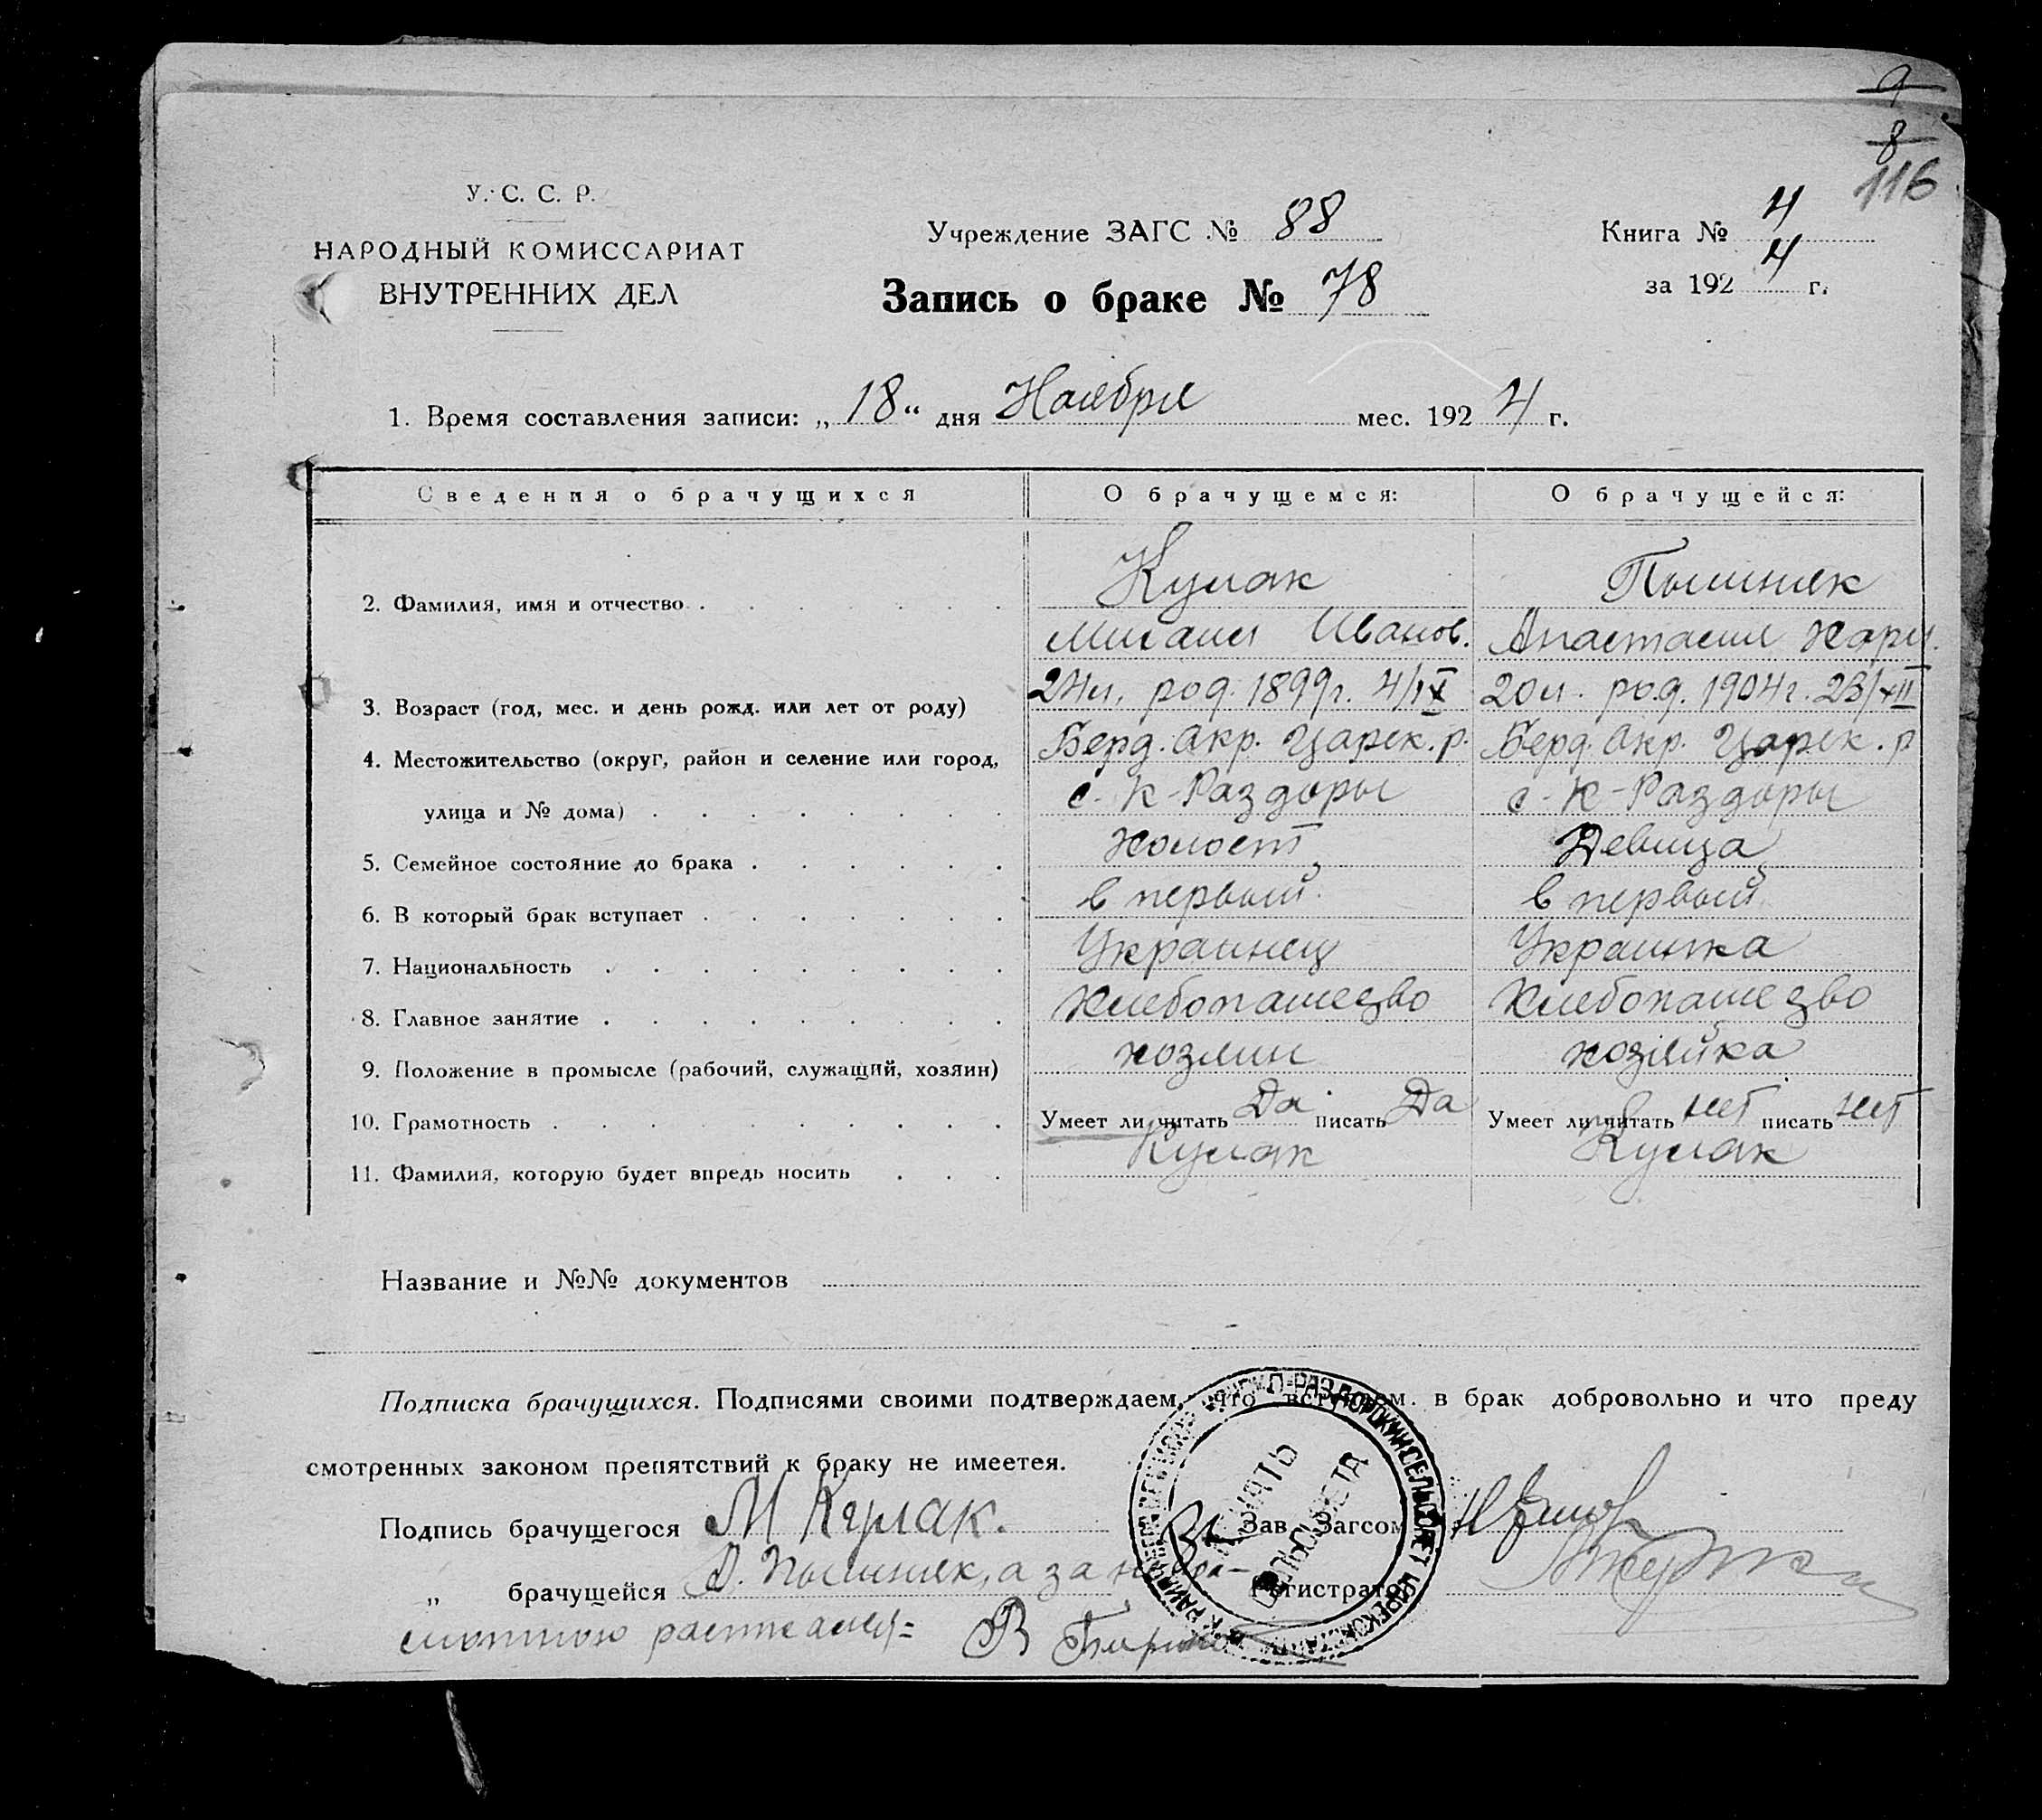 9
8
116
У. С. С. Р.
НАРОДНЫЙ КОМИССАРИАТ
ВНУТРЕННИХ ДЕЛ
Учреждение ЗАГС № 88
Запись о браке № 78
Книга № 4
за 1924 г.
1. Время составления записи: „18“ дня Ноября мес. 1924 г.
Сведения о брачущихся О брачущемся: О брачущейся:
2. Фамилия, имя и отчество Кулак Полиняк
Михаил Иванов. Анастасия Хари.
3. Возраст (год, мес. и день рожд. или лет от роду) 24л. род. 1899г. 4/IX 20л. род. 1904г. 23/XII
4. Местожительство (округ, район и селение или город, Берд. Окр. Царек. р. Берд. Окр. Царек. р
улица и № дома) с-К-Раздоры с-К-Раздоры
5. Семейное состояние до брака Холост Девица
6. В который брак вступает в первый в первый
7. Национальность Украинец Украинка
8. Главное занятие Хлебопашезво Хлебопашезво
9. Положение в промысле (рабочий, служащий, хозяин) хозяин хозяйка
10. Грамотность Умеет ли читать Да писать Да Умеет ли читать нет писать нет
11. Фамилия, которую будет впредь носить Кулак Кулак
Название и №№ документов
Подписка брачущихся. Подписями своими подтверждаем, что вступаем в брак добровольно и что преду
смотренных законом препятствий к браку не имеетея.
Подпись брачущегося М Кулак. Зав. Загсом
„ брачущейся А. Полиняк, а за негра- Регистратор
мотною
ПЕЧАТЬ
СЕЛЬСОВЕТА